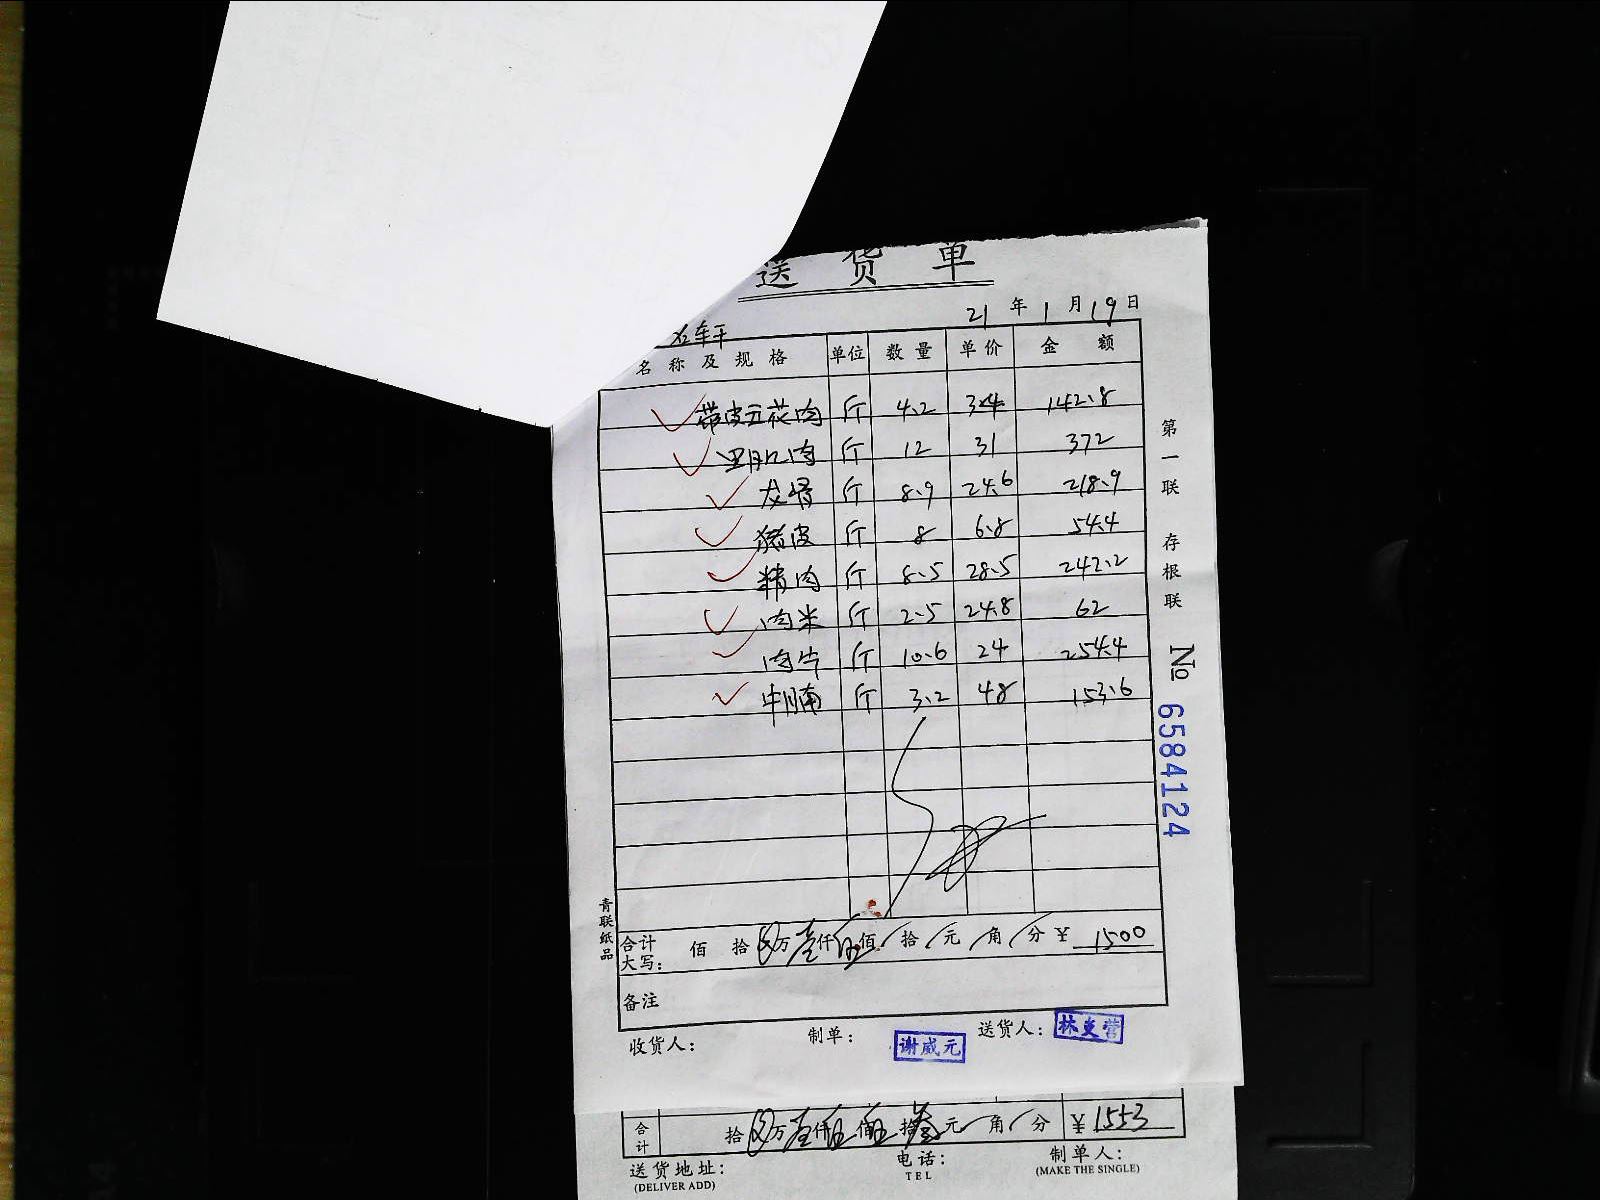 送 货 单
21 年 1 月 19 日
轩
名 称 及 规 格 单位 数 量 单 价 金 额
带皮五花肉 斤 4.2 34 142.8
里肌肉 斤 12 31 372
龙骨 斤 8.9 24.6 218.9
猪皮 斤 8 6.8 54.4
精肉 斤 8.5 28.5 242.2
肉米 斤 2.5 24.8 62
肉片 斤 10.6 24 254.4
牛腩 斤 3.2 48 153.6
第一联 存根联
№ 6584124
青联纸品
合计大写: 佰 拾 万 壹仟 伍佰 / 拾 / 元 / 角 / 分 ¥ 1500
备注
收货人: 制单: 谢威元 送货人: 林炎营
合计 拾 万 壹仟 伍佰 伍拾 叁元 / 角 / 分 ¥ 1553
送货地址: 电话: 制单人:
(DELIVER ADD) TEL (MAKE THE SINGLE)